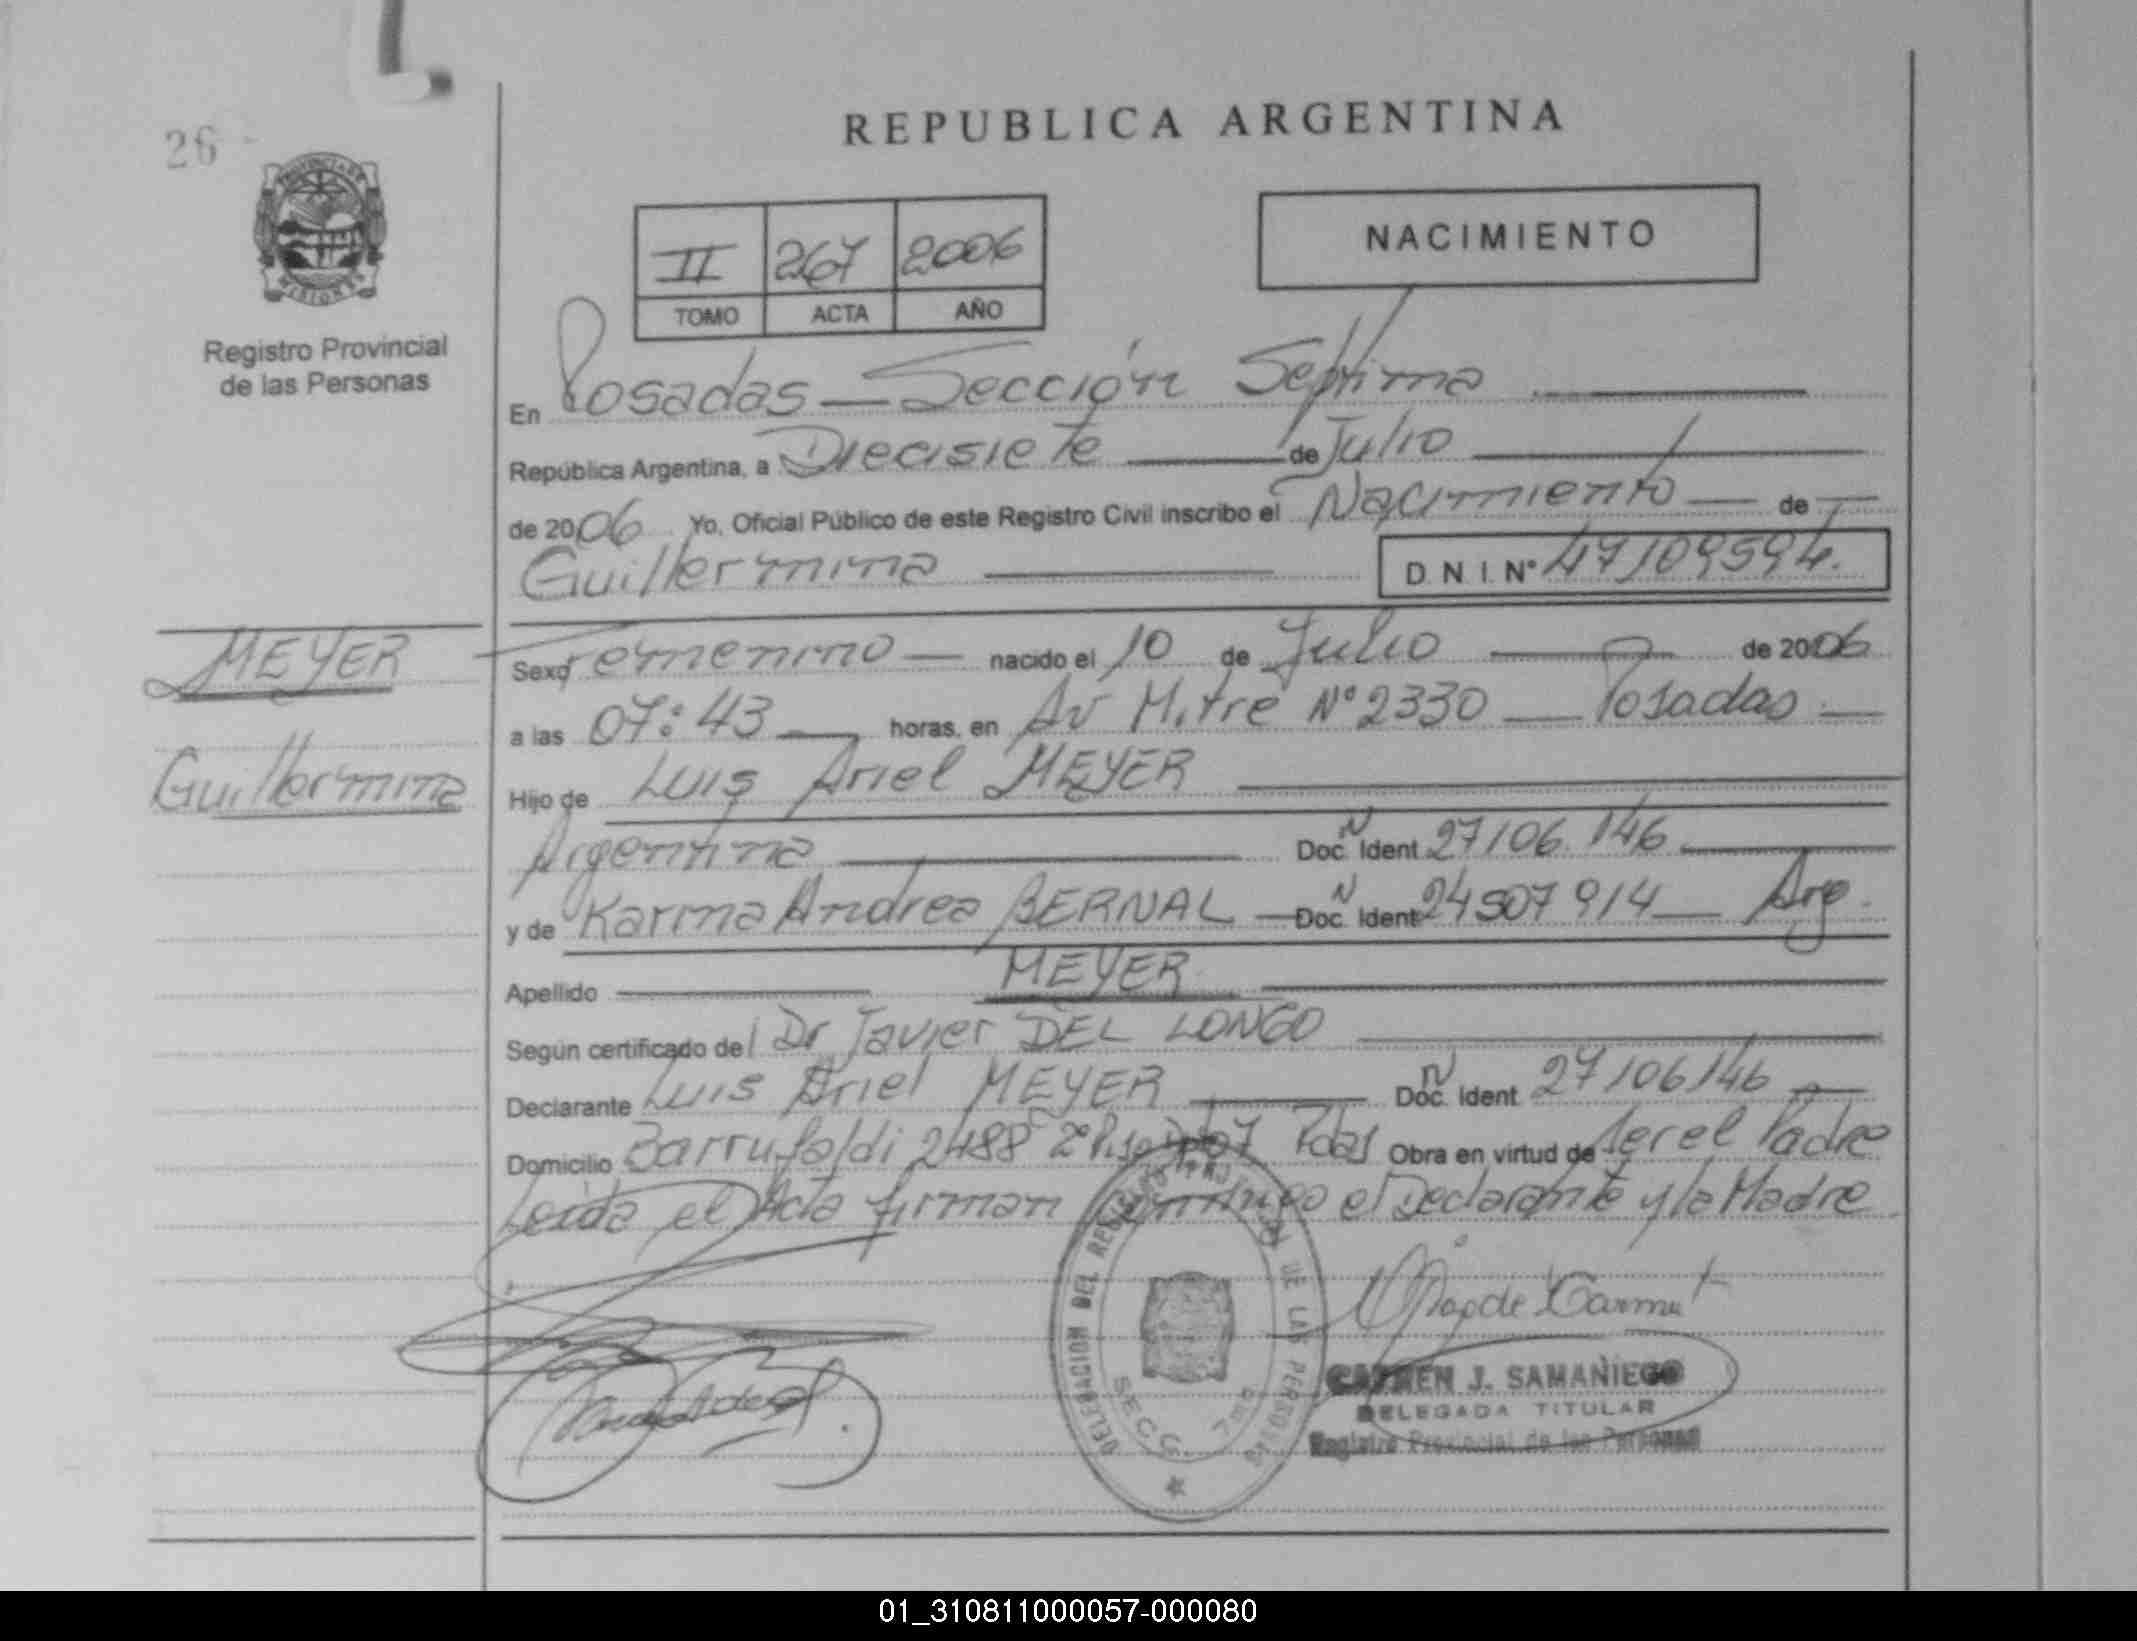 26
REPUBLICA ARGENTINA
PROVINCIA DE
MISIONES
Registro Provincial
de las Personas
II 267 2006
TOMO ACTA AÑO
NACIMIENTO
En Posadas — Sección Séptima
República Argentina, a Diecisiete de Julio
de 2006 Yo, Oficial Público de este Registro Civil inscribo el Nacimiento de
Guillermina D N I. N° 47109594.
MEYER
Guillermina
Sexo Femenino nacido el 10 de Julio de 2006
a las 07:43 horas, en Av Mitre N° 2330 Posadas
Hijo de Luis Ariel MEYER
Argentina Doc. Ident 27106.146
y de Karina Andrea BERNAL Doc. Ident 24507914 Arg.
Apellido MEYER
Según certificado del Dr Javier DEL LONGO
Declarante Luis Ariel MEYER Doc. Ident. 27106146
Domicilio Barrufaldi 2488 2° Piso Pdas Obra en virtud de ser el Padre
Leída el Acta firman conmigo el Declarante y la Madre
DELEGACION DEL REGISTRO PROVINCIAL DE LAS PERSONAS
SECC. 7ma
CARMEN J. SAMANIEGO
DELEGADA TITULAR
Registro Provincial de las Personas
01_310811000057-000080